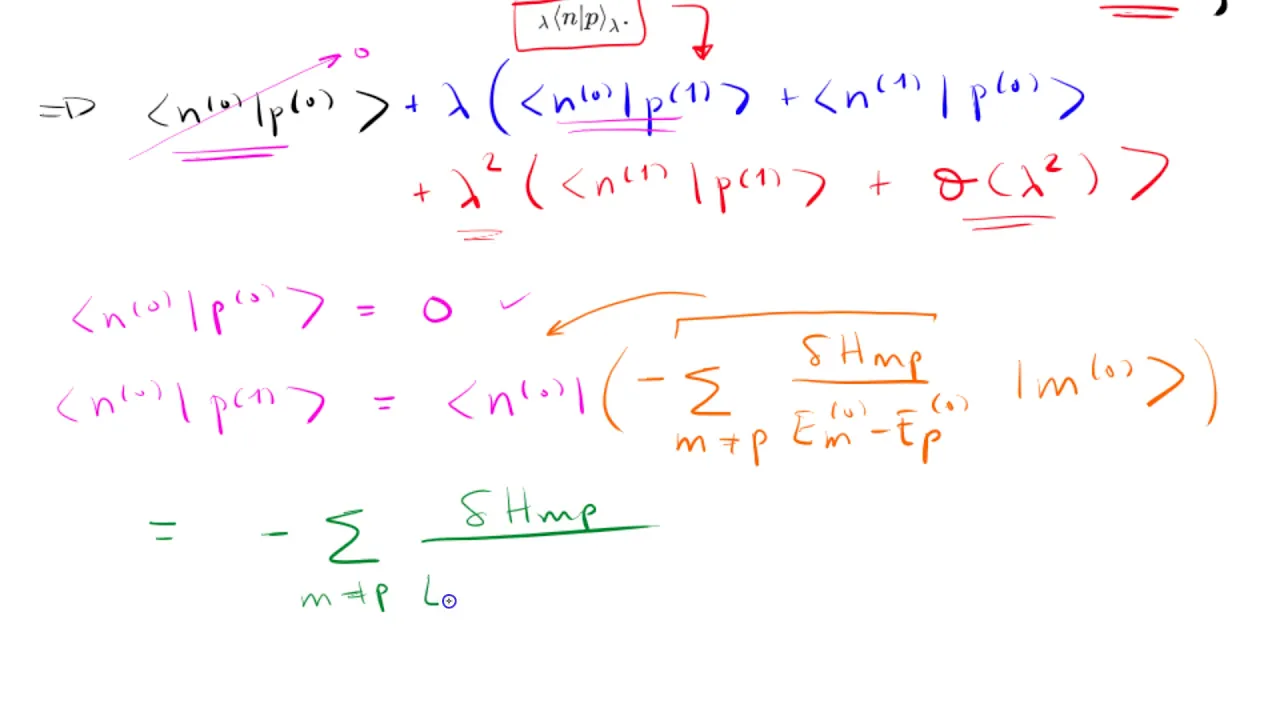 λ⟨n|p⟩λ.
=D <n(0)|p(0)> + λ ( <n(0)|p(1)> + <n(1)|p(0)>
0
+ λ² ( <n(1)|p(1)> + O(λ²) >
<n(0)|p(0)> = 0 ✓
<n(0)|p(1)> = <n(0)| ( - Σ m≠p δHmp / Em(0) - Ep(0) |m(0)> )
= - Σ m≠p δHmp